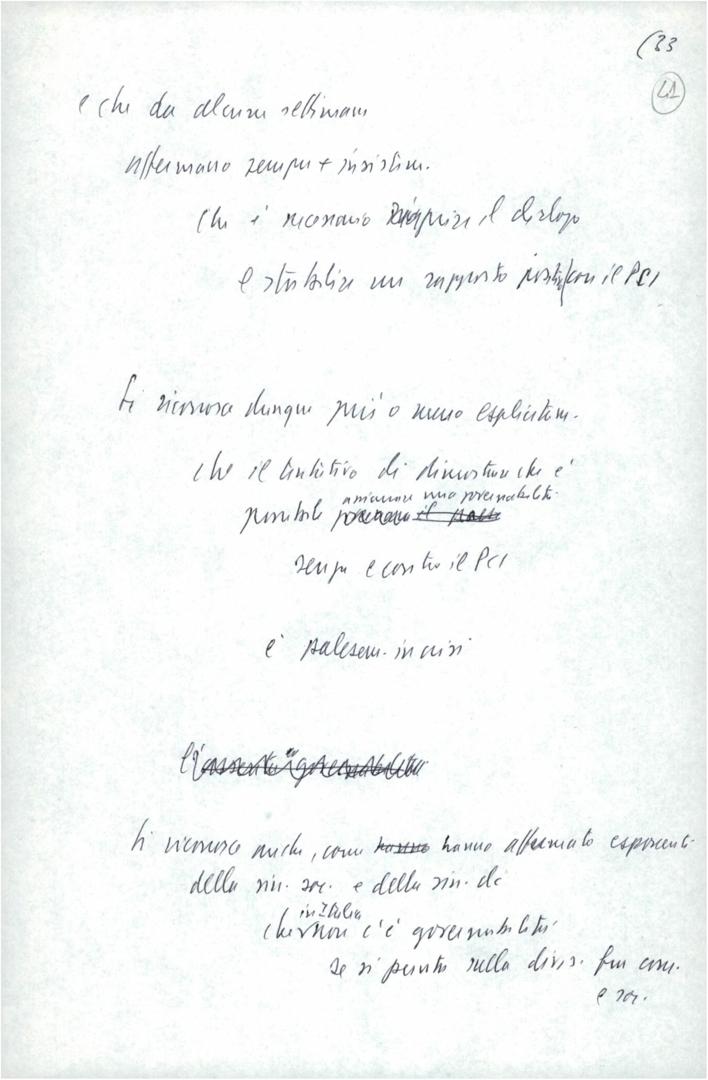 (33
41
e che da alcune settimane
affermano sempre + insistem.
che è necessario il dialogo
e stabilire un rapporto posit. con il PCI
Si riconosce dunque più o meno esplicitam.
che il tentativo di dimostrare che è
assicurare una governabilità
possibile il paese
senza e contro il PCI
è palesem. in crisi
l'asserita "governabilità
Si riconosce anche, come hanno hanno affermato esponenti
della sin. soc. e della sin. dc
in Italia
che non c'è governabilità
se si punta sulla divis. fra com.
e soc.